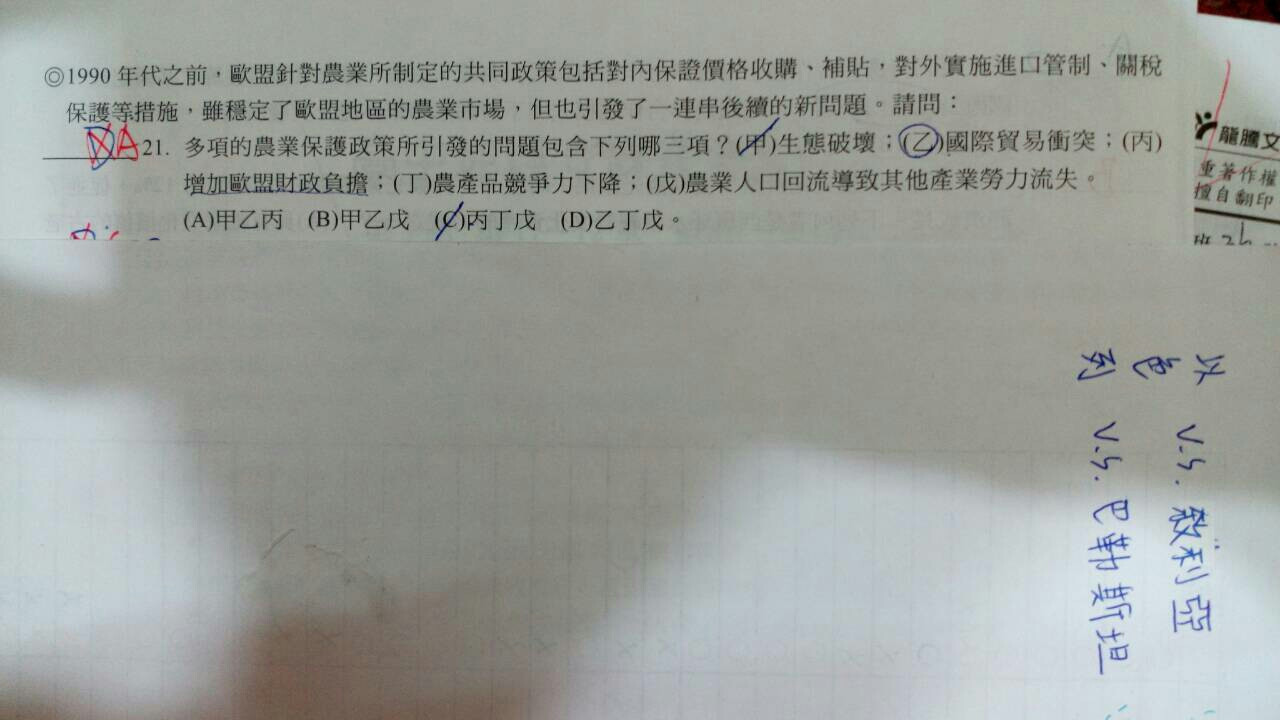 ◎1990 年代之前，歐盟針對農業所制定的共同政策包括對內保證價格收購、補貼，對外實施進口管制、關稅
保護等措施，雖穩定了歐盟地區的農業市場，但也引發了一連串後續的新問題。請問：
A 21. 多項的農業保護政策所引發的問題包含下列哪三項？(甲)生態破壞；(乙)國際貿易衝突；(丙)
增加歐盟財政負擔；(丁)農產品競爭力下降；(戊)農業人口回流導致其他產業勞力流失。
(A)甲乙丙 (B)甲乙戊 (C)丙丁戊 (D)乙丁戊。
龍騰文
重著作權
擅自翻印
以色列
V.S. 敘利亞
V.S. 巴勒斯坦